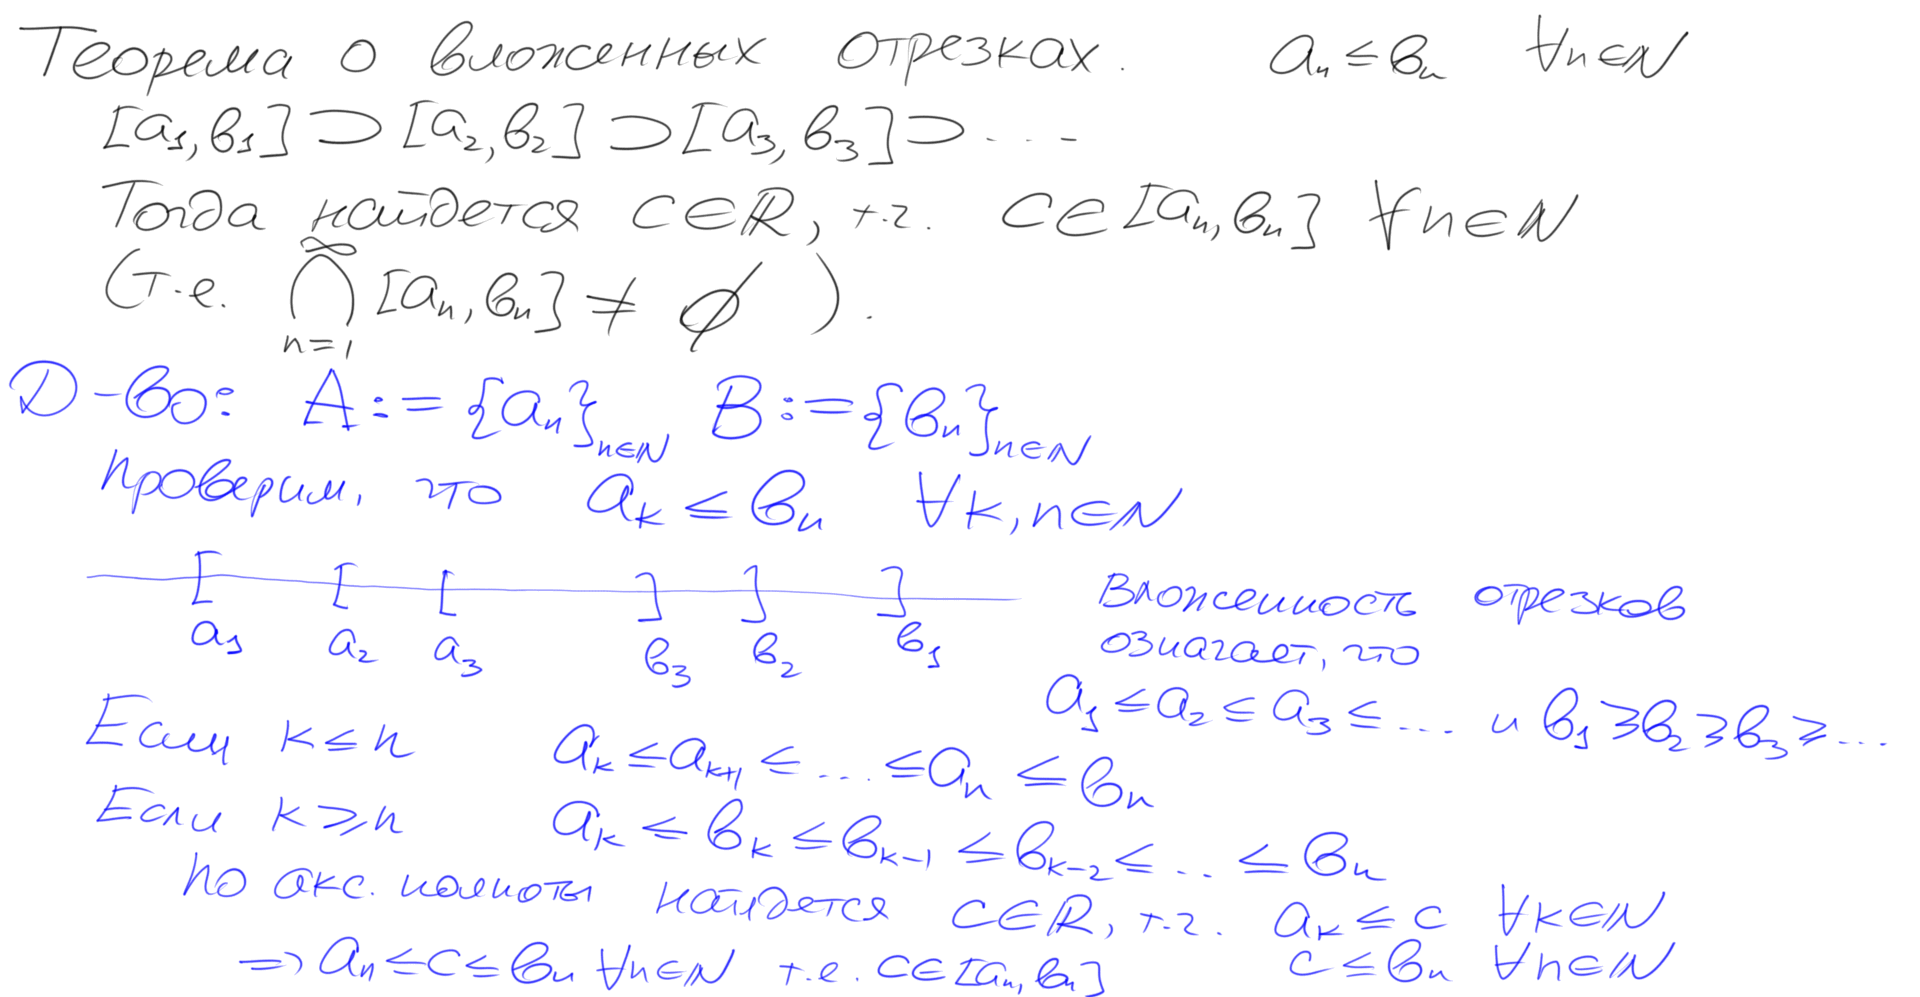 Теорема о вложенных отрезках. aₙ ≤ bₙ ∀n∈ℕ
[a₁, b₁] ⊃ [a₂, b₂] ⊃ [a₃, b₃] ⊃ ...
Тогда найдется c∈ℝ, т.ч. c∈[aₙ, bₙ] ∀n∈ℕ
(т.е. ⋂_{n=1}^{∞} [aₙ, bₙ] ≠ ∅).
Д-во: A := {aₙ}_{n∈ℕ} B := {bₙ}_{n∈ℕ}
Проверим, что aₖ ≤ bₙ ∀k, n∈ℕ
[ [ [ ] ] ]
a₁ a₂ a₃ b₃ b₂ b₁
Вложенность отрезков
означает, что
a₁ ≤ a₂ ≤ a₃ ≤ ... и b₁ ≥ b₂ ≥ b₃ ≥ ...
Если k ≤ n aₖ ≤ aₖ₊₁ ≤ ... ≤ aₙ ≤ bₙ
Если k ≥ n aₖ ≤ bₖ ≤ bₖ₋₁ ≤ bₖ₋₂ ≤ ... ≤ bₙ
По акс. полноты найдется c∈ℝ, т.ч. aₖ ≤ c ∀k∈ℕ
c ≤ bₙ ∀n∈ℕ
⇒ aₙ ≤ c ≤ bₙ ∀n∈ℕ т.е. c∈[aₙ, bₙ]